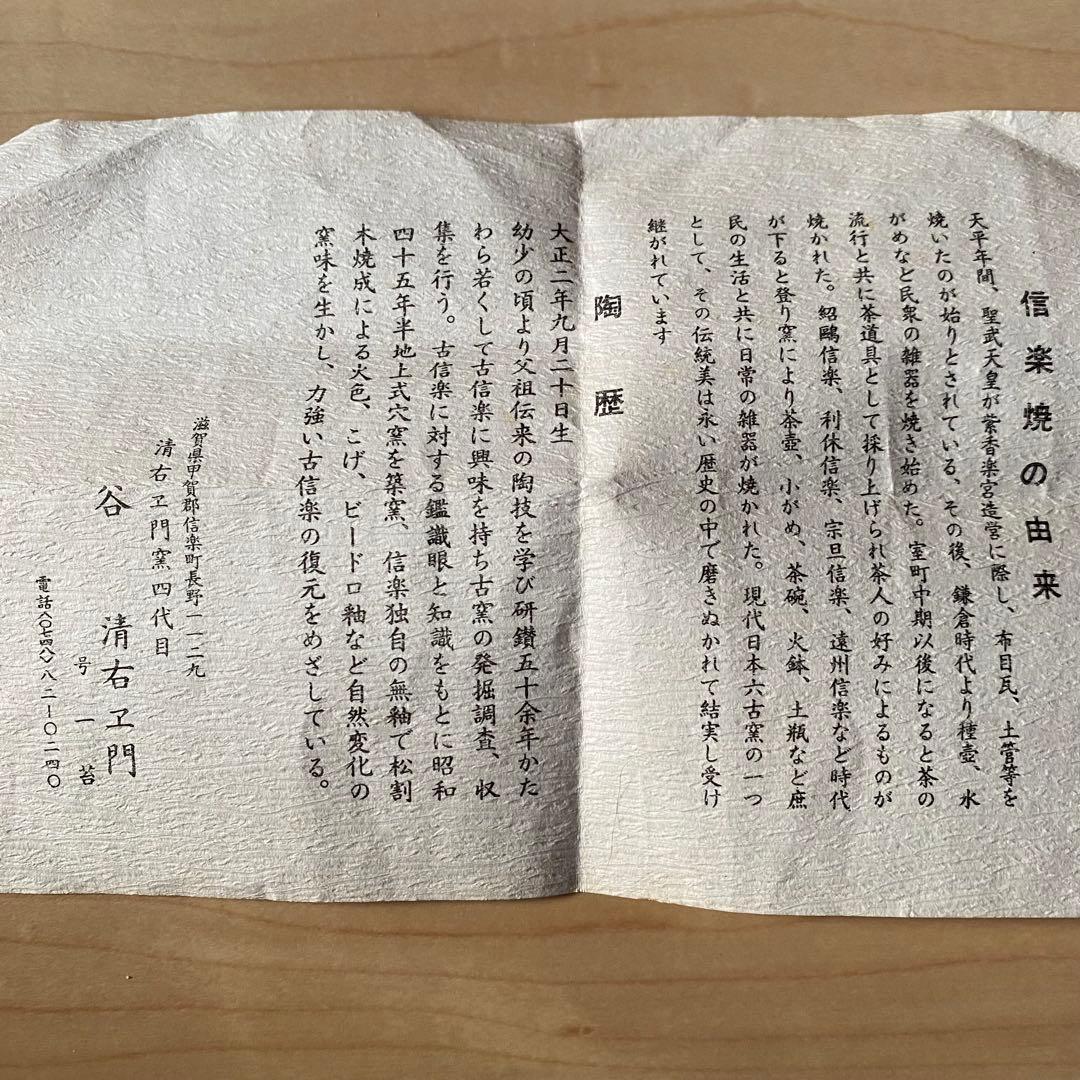 信楽焼の由来
天平年間、聖武天皇が紫香楽宮造営に際し、布目瓦、土管等を
焼いたのが始りとされている、その後、鎌倉時代より種壺、水
がめなど民衆の雑器を焼き始めた。室町中期以後になると茶の
流行と共に茶道具として採り上げられ茶人の好みによるものが
焼かれた。紹鷗信楽、利休信楽、宗旦信楽、遠州信楽など時代
が下ると登り窯により茶壺、小がめ、茶碗、火鉢、土瓶など庶
民の生活と共に日常の雑器が焼かれた。現代日本六古窯の一つ
として、その伝統美は永い歴史の中で磨きぬかれて結実し受け
継がれています
陶歴
大正二年九月二十日生
幼少の頃より父祖伝来の陶技を学び研鑽五十余年かた
わら若くして古信楽に興味を持ち古窯の発掘調査、収
集を行う。古信楽に対する鑑識眼と知識をもとに昭和
四十五年半地上式穴窯を築窯、信楽独自の無釉で松割
木焼成による火色、こげ、ビードロ釉など自然変化の
窯味を生かし、力強い古信楽の復元をめざしている。
滋賀県甲賀郡信楽町長野一一二九
清右ヱ門窯四代目
谷 清右ヱ門
号 一苔
電話〈〇七四八〉八二-〇二四〇